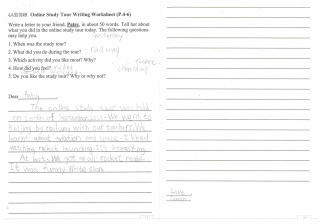 Online Study Tour Writing Worksheet (P.4-6)
Write a letter to your friend, Patsy, in about 50 words. Tell her about
what you did in the online study tour today. The following questions
may help you.
1. When was the study tour?
yesterday
2. What did you do during the tour?
railway
3. Which activity did you like most? Why?
4. How did you feel?
5. Do you like the study tour? Why or why not?
Dear Patsy
The online study tour was held
on
We went to
Beijing by railway with our teachers. We
learnt about aviation and space. I liked
watching rocket launching. It's interesting.
At last, We got
It was funny. Write soon
Love,